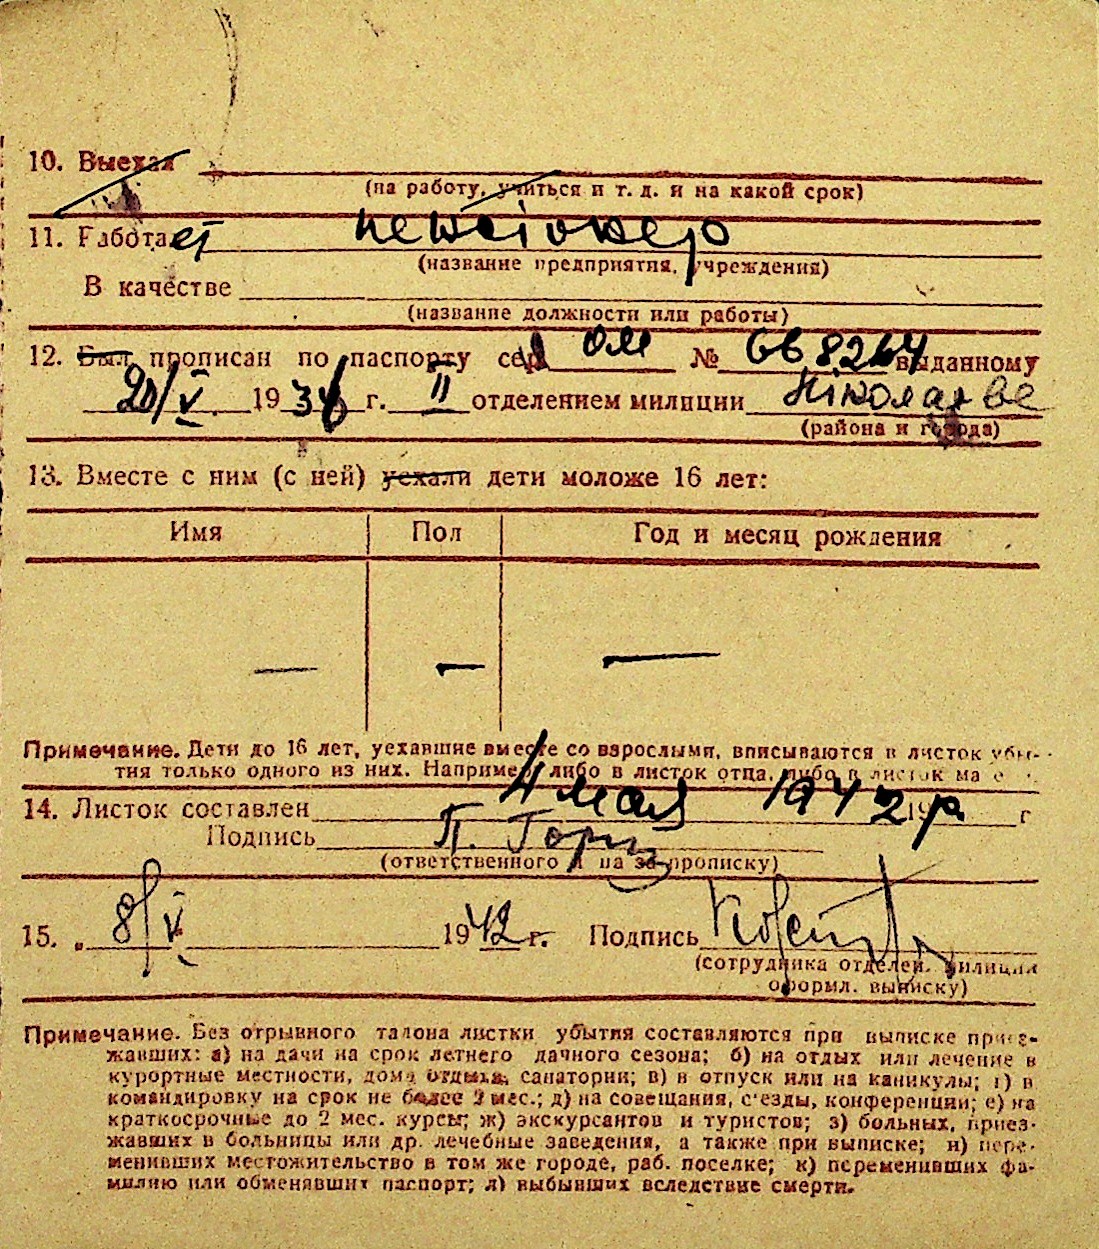 10. Выехал
(на работу, учиться и т. д. и на какой срок)
11. Работает пенсіонер
(название предприятия, учреждения)
В качестве
(название должности или работы)
12. Был прописан по паспорту сер ОМ № 668264 выданному
20/V 1936 г. II отделением милиции Ніколаеве
(района и города)
13. Вместе с ним (с ней) уехали дети моложе 16 лет:
Имя Пол Год и месяц рождения
— — —
Примечание. Дети до 16 лет, уехавшие вместе со взрослыми, вписываются в листок убы-
тия только одного из них. Например, либо в листок отца, либо в листок ма
14. Листок составлен 4 мая 1942 р 19 г
Подпись П.
(ответственного за прописку)
15. „ 8/V 1942 г. Подпись
(сотрудника отделен. милиции
оформл. выписку)
Примечание. Без отрывного талона листки убытия составляются при выписке приез-
жавших: а) на дачи на срок летнего дачного сезона; б) на отдых или лечение в
курортные местности, дома отдыха, санатории; в) в отпуск или на каникулы; г) в
командировку на срок не более 2 мес.; д) на совещания, с'езды, конференции; е) на
краткосрочные до 2 мес. курсы; ж) экскурсантов и туристов; з) больных, приез-
жавших в больницы или др. лечебные заведения, а также при выписке; и) пере-
менивших местожительство в том же городе, раб. поселке; к) переменивших фа-
милию или обменявших паспорт; л) выбывших вследствие смерти.